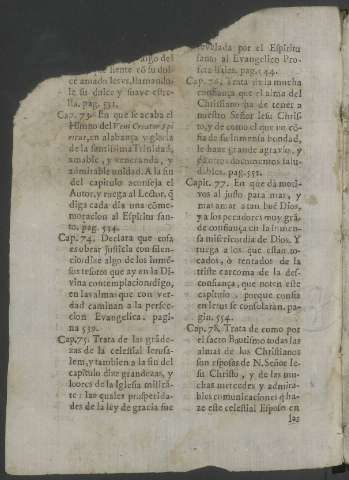 algo del
que siente có su dul-
ce amado Iesvs, llamando-
le su dulce y suave estre-
lla. pag. 531.
Cap. 73. En que se acaba el
Himno del Veni Creator Spi-
ritus, en alabança y gloria
de la santissima Trinidad,
amable, y veneranda, y
admirable unidad. A la fin
del capitulo aconseja el
Autor, y ruega al Lector, q̃
diga cada dia una cõme-
moracion al Espiritu san-
to. pag. 534.
Cap. 74. Declara que cosa
es obrar justicia con silen-
cio: dize algo de los inmẽ-
sos tesoros que ay en la Di-
vina contemplacion: digo,
en las almas que con ver-
dad caminan a la perfec-
cion Evangelica. pagi-
na 539.
Cap. 75. Trata de las grãde-
zas de la celestial Ierusa-
lem, y tambien a la fin del
capitulo dize grandezas, y
loores de la Iglesia militã-
te: las quales prosperida-
des de la ley de gracia fue
revelada por el Espiritu
santo al Evangelico Pro-
feta Isaias. pag. 544.
Cap. 76. Trata de la mucha
confiança que el alma del
Christiano ha de tener a
nuestro Señor Iesu Chris-
to, y de como el que no cõ-
fia de su inmensa bondad,
le haze grande agravio, y
pä otros documentos salu-
dables. pag. 551.
Capit. 77. En que dà moti-
vos al justo para mas, y
mas amar a tan buẽ Dios,
y a los pecadores muy grã-
de confiança en la inmen-
sa misericordia de Dios. Y
ruega a los que estan to-
cados, ò tentados de la
triste carcoma de la des-
confiança, que noten este
capitulo, porque confia
en Iesus se consolaràn. pa-
gin. 554.
Cap. 78. Trata de como por
el sacro Bautismo todas las
almas de los Christianos
son esposas de N. Señor Ie-
su Christo, y de las mu-
chas mercedes y admira-
bles comunicaciones q̃ ha-
ze este celestial Esposo en
las